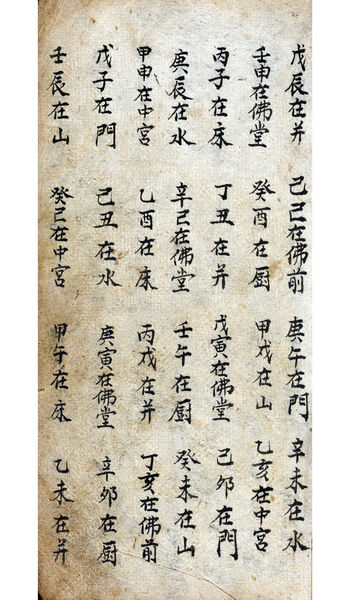 戊辰在井 己巳在佛前 庚午在門 辛未在水
壬申在佛堂 癸酉在厨 甲戌在山 乙亥在中宮
丙子在床 丁丑在井 戊寅在佛堂 己卯在門
庚辰在水 辛巳在佛堂 壬午在厨 癸未在山
甲申在中宮 乙酉在床 丙戌在井 丁亥在佛前
戊子在門 己丑在水 庚寅在佛堂 辛卯在厨
壬辰在山 癸巳在中宮 甲午在床 乙未在井